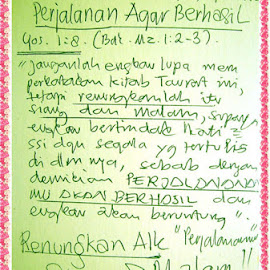 Perjalanan Agar Berhasil
Yos. 1:8. (Bdk. Mz. 1:2-3).
"Janganlah engkau lupa mem
perkatakan kitab Taurat ini,
tetapi renungkanlah itu
siang dan malam, supaya
engkau bertindak hati2
ssi dgn segala yg tertulis
di dlm nya, sebab dengan
demikian PERJALANAN
MU AKAN BERHASIL dan
engkau akan beruntung".
Renungkan Alk "Perjalananmu
Malam!!